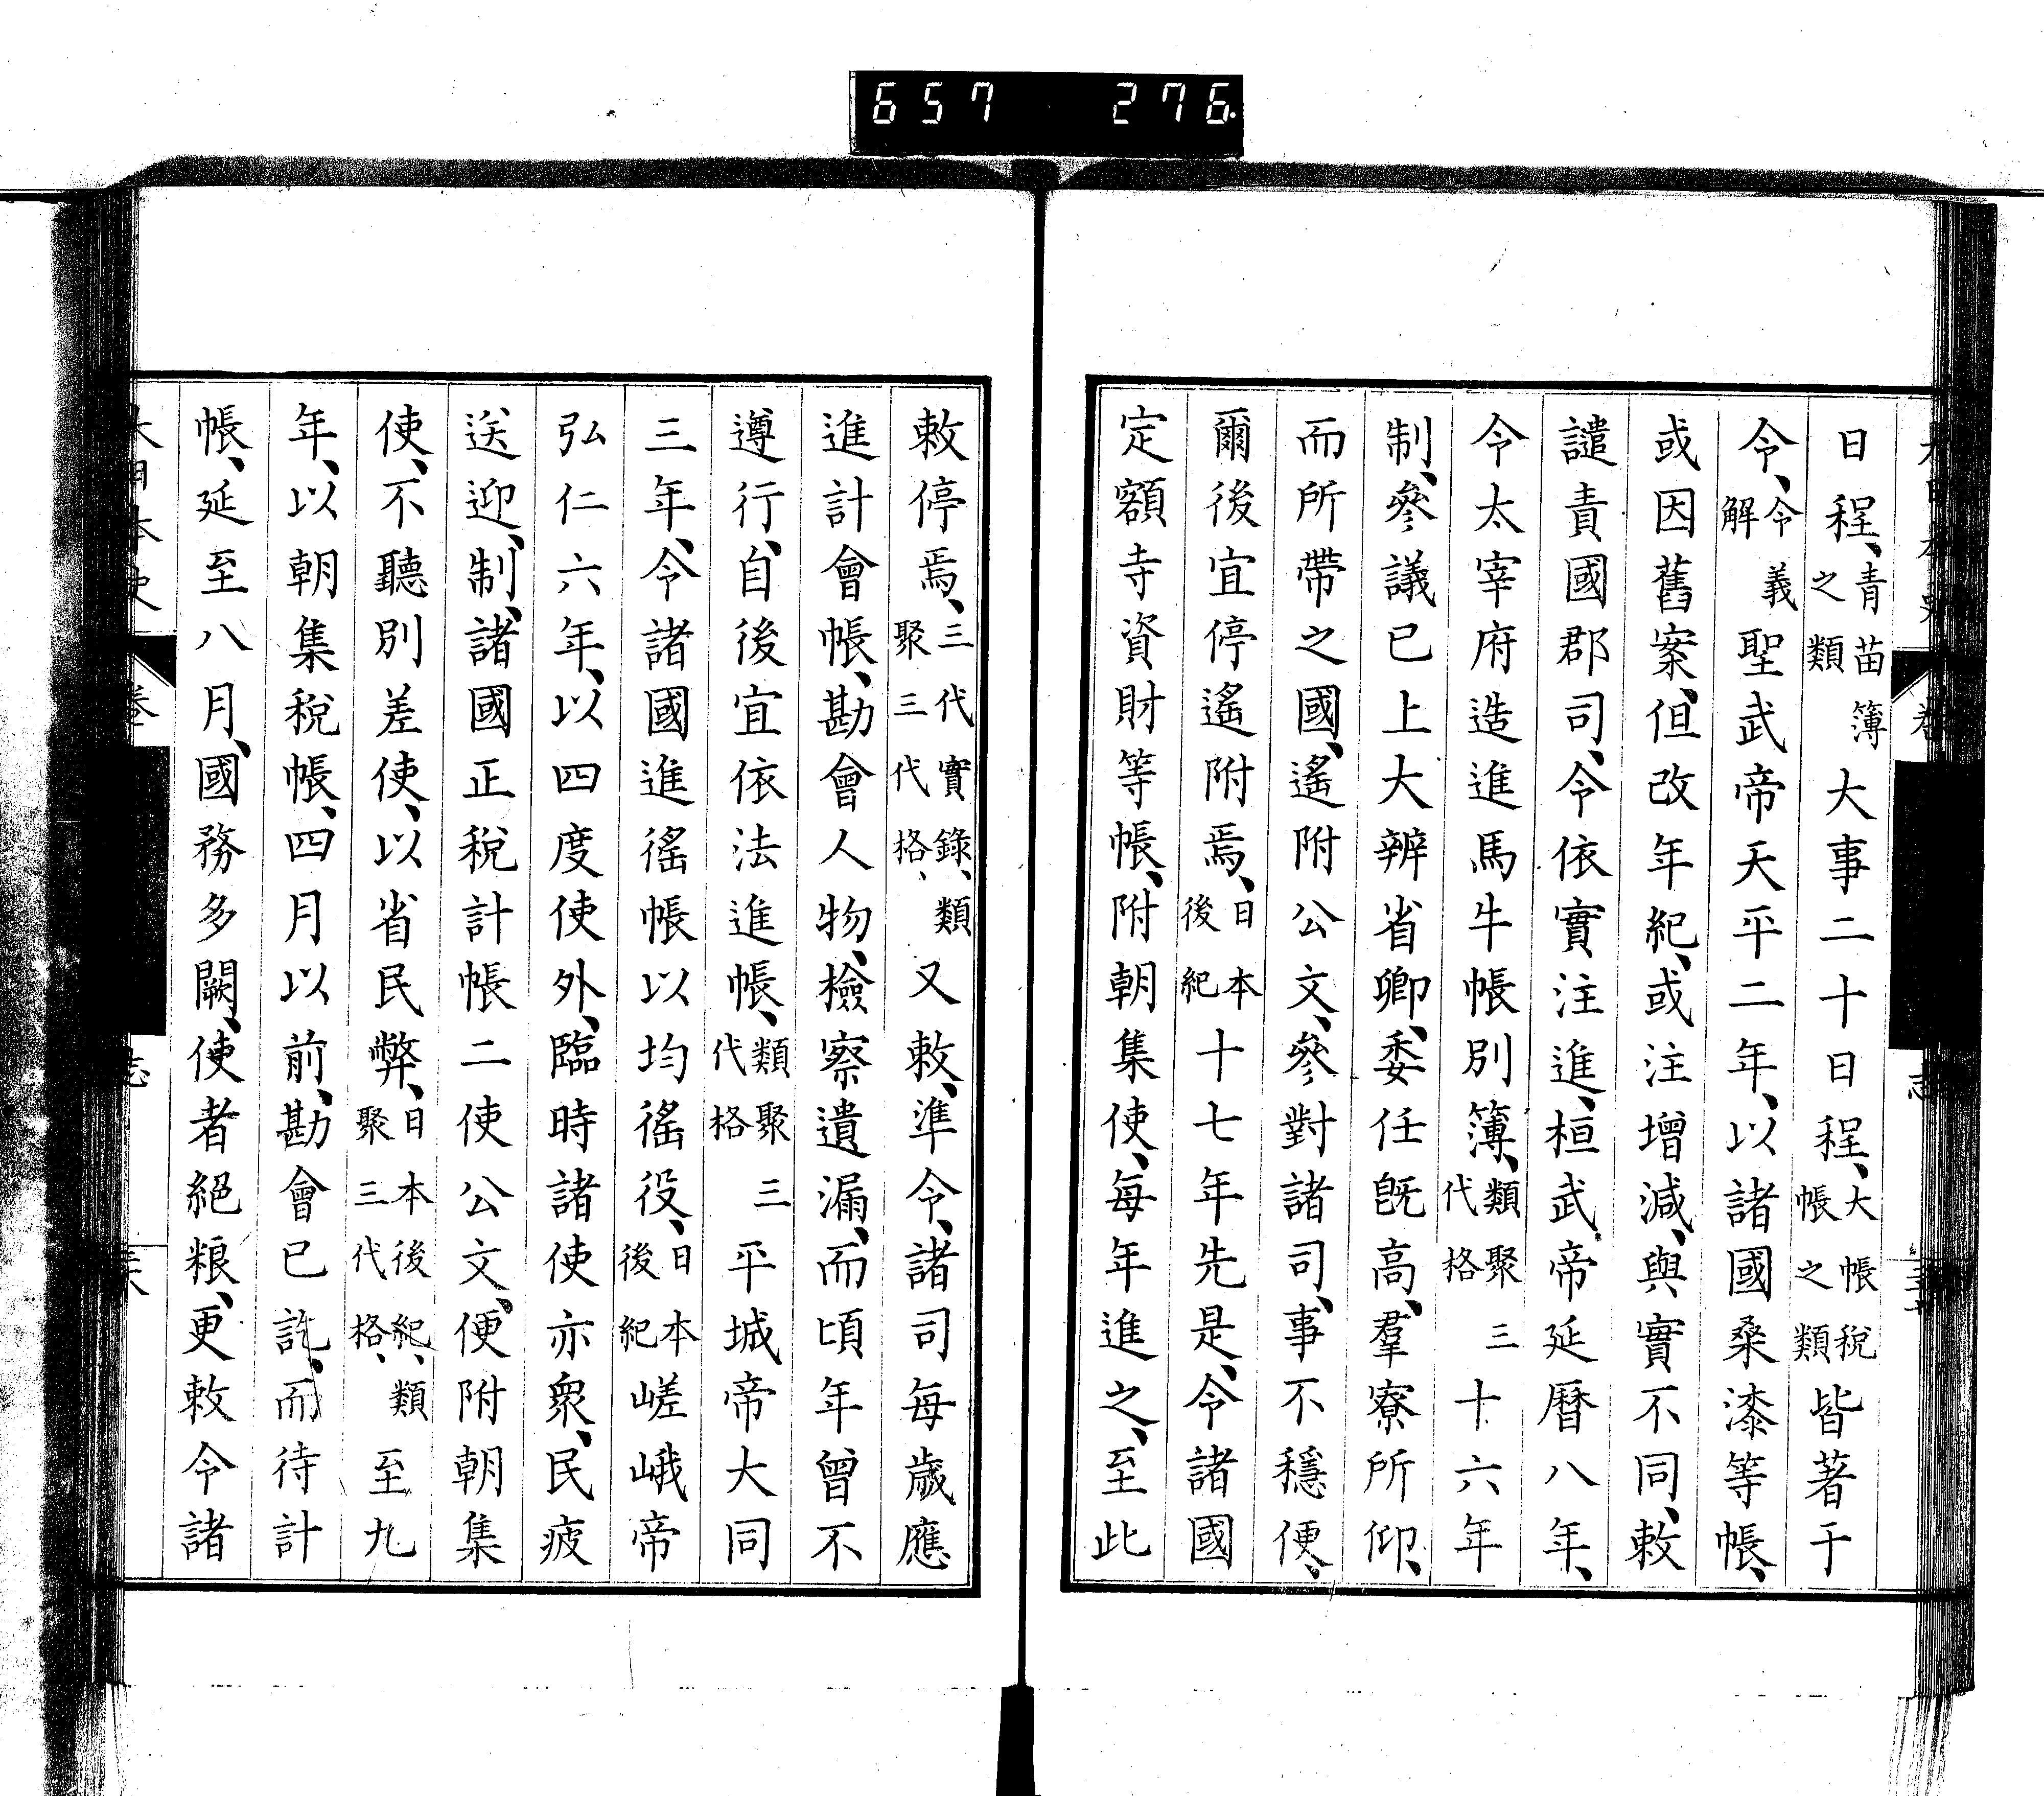 657 276
日程、青苗簿之類大事二十日程、大帳稅帳之類皆著于
令、令義解聖武帝天平二年、以諸國桑漆等帳、
或因舊案、但改年紀、或注增減、與實不同、敕
譴責國郡司、令依實注進、桓武帝延曆八年、
令太宰府造進馬牛帳別簿、類聚三代格十六年
制、參議已上大辨省卿、委任既高、羣寮所仰、
而所帶之國、遙附公文、參對諸司、事不穩便、
爾後宜停遙附焉、日本後紀十七年先是、令諸國
定額寺資財等帳、附朝集使、每年進之、至此
敕停焉、三代實錄、類聚三代格、又敕、準令、諸司每歲應
進計會帳、勘會人物、檢察遺漏、而頃年曾不
遵行、自後宜依法進帳、類聚三代格平城帝大同
三年、令諸國進徭帳以均徭役、日本後紀嵯峨帝
弘仁六年、以四度使外、臨時諸使亦衆、民疲
送迎、制、諸國正稅計帳二使公文、便附朝集
使、不聽別差使、以省民弊、日本後紀、類聚三代格、至九
年、以朝集稅帳、四月以前、勘會已訖、而待計
帳、延至八月、國務多闕、使者絕粮、更敕令諸